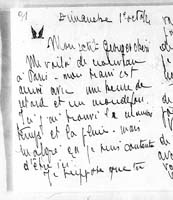 21 Dimanche 1er octobre
Mon petit Georges chéri
Me voilà de nouveau
à Paris - mon train est
arrivé avec une heure de
retard et un monde fou.
J'ai trouvé le mauvais
temps et la pluie - mais
malgré ça je suis contente
d'être ici.
Je suppose que tu